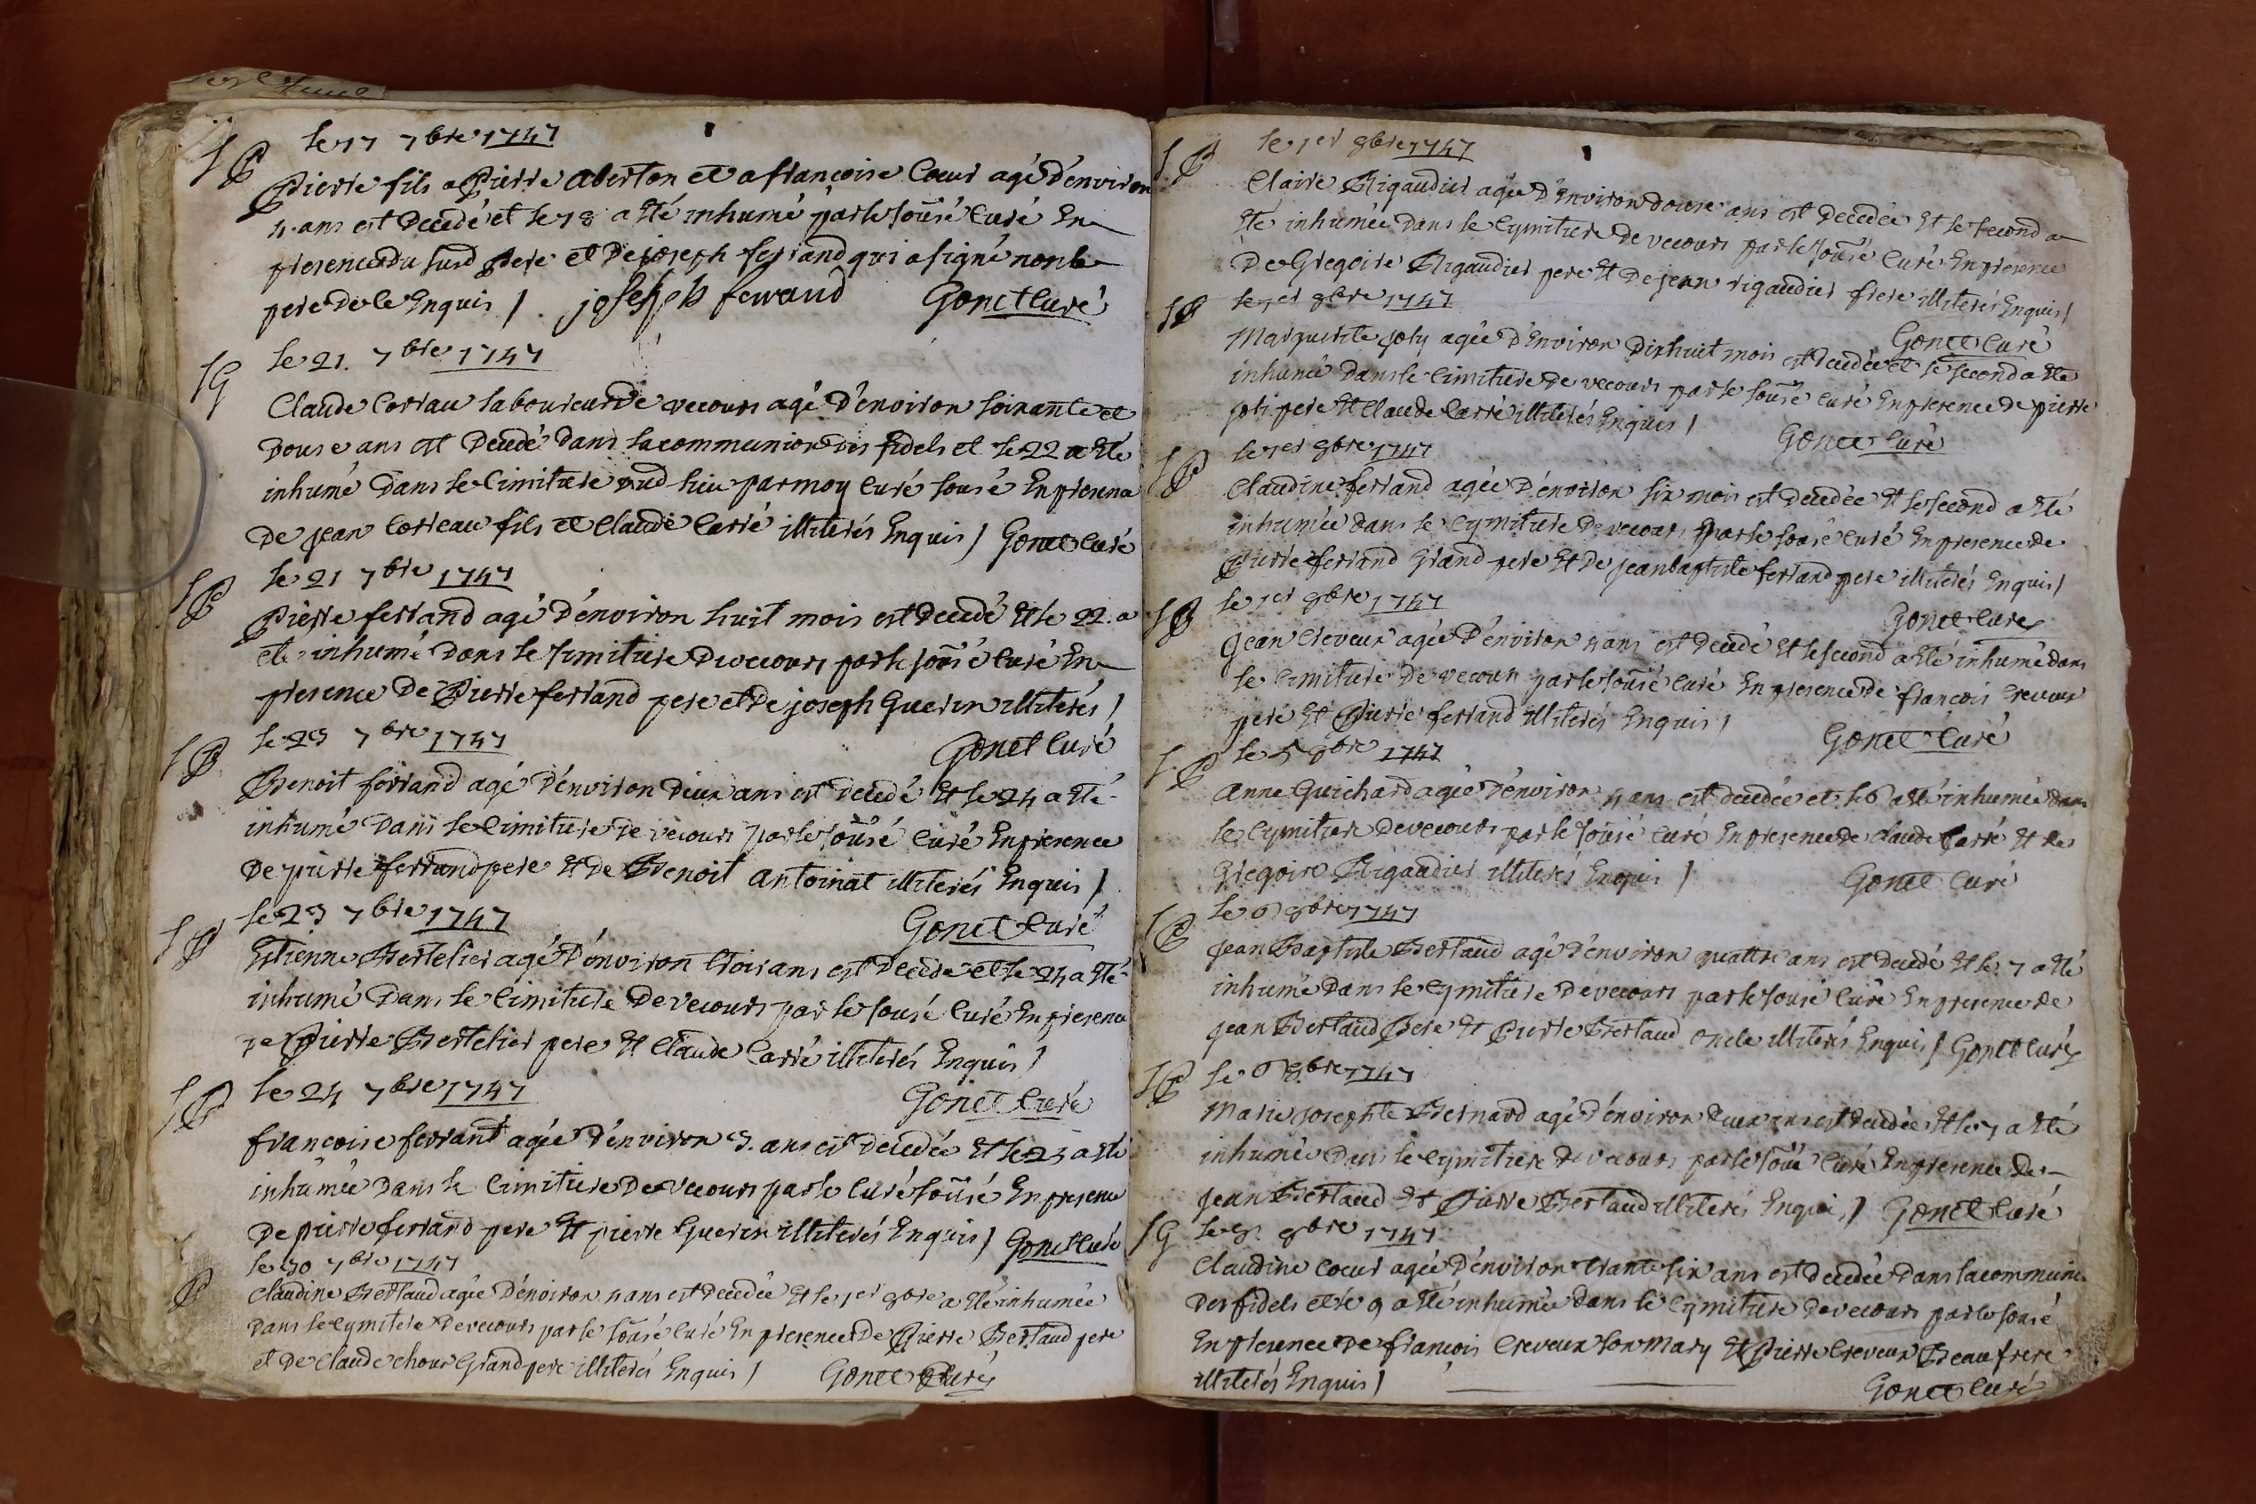 le 17 7bre 1747
SP
Pierre fils a Pierre aberton et a françoise Cœur agé d'environ
4 ans est Decedé et le 18 a Eté inhumé par le sousé Curé En
presence du susd Pere et De joseph ferrand qui a signé non le
pere De ce Enquis / joseph ferrand Gonet Curé
SG
le 21. 7bre 1747
Claude Corsau laboureur De vecours agé D'environ soixante et
Douse ans est Decedé Dans la communion Des fidels et le 22 a Eté
inhumé Dans le Cimitiere aud lieu par moy Curé sousé En presence
De jean Corseau fils et Claude Carré illiterés Enquis / Gonet Curé
SP
le 21 7bre 1747
Pierre ferrand agé D'environ huit mois est Decedé Et le 22. a
eté inhumé Dans le simitiere De vecours par le sousé Curé En
presence De Pierre ferrand pere et De joseph Guerin illiterés /
Gonet Curé
SP
le 23 7bre 1747
Benoit ferrand agé D'environ Deux ans est Decedé Et le 24 a Eté
inhumé Dans le Cimitiere De vecours par le sousé Curé En presence
De pierre ferrand pere Et De Benoit antoinat illiterés Enquis /
Gonet Curé
SP
le 23 7bre 1747
Estienne Bertelier agé D'environ trois ans est Decedé et le 24 a Eté
inhumé Dans le Cimitiere De vecours par le sousé Curé En presence
De Pierre Bertelier pere Et Claude Carré illiterés Enquis /
Gonet Curé
SP
le 24 7bre 1747
francoise ferrant agée D'environ 3. ans est Decedée Et le 25 a Eté
inhumée Dans le Cimitiere De vecours par le Curé sousé En presence
De pierre ferrand pere Et pierre Guerin illiterés Enquis / Gonet Curé
P
le 30 7bre 1747
Claudine Bertaud agée D'environ 4 ans est Decedée Et le 1er 8bre a Eté inhumée
Dans le Cymitere De vecours par le sousé Curé En presence De Pierre Bertaud pere
et De Claude chour Grand pere illiterés Enquis / Gonet Curé
SP
le 1er 8bre 1747
Claire Rigaudier agée D'Environ Douse ans est Decedée Et le second a
Eté inhumée Dans le Cymitiere De vecours par le sousé Curé En presence
De Gregoire Rigaudier pere Et De jean rigaudier frere illiterés Enquis /
Gonet Curé
SP
le 1er 8bre 1747
Marguerite joly agée D'Environ Dixhuit mois est Decedée et le second a Eté
inhumé Dans le Cimitiere De vecours par le sousé Curé En presence De pierre
joli pere Et Claude Carré illiterés Enquis /
Gonet Curé
SP
le 1er 8bre 1747
Claudine ferrand agée D'environ six mois est Decedée Et le second a Eté
inhumée Dans le Cymitiere De vecours Par le sousé Curé En presence De
Pierre ferrand Grand pere Et De jean baptiste ferrand pere illiterés Enquis /
Gonet Curé
SP
le 1er 8bre 1747
jean Creveux agée D'environ 4 ans est Decedé Et le second a Eté inhumé Dans
le Cimitiere De vecours par le sousé Curé En presence De francois Creveux
pere Et Pierre ferrand illiterés Enquis /
Gonet Curé
SP
le 5 8bre 1747
anne Guichard agée D'environ 4 ans est decedée et le 6 a Eté inhumée Dans
le Cymitiere De vecours par le sousé Curé En presence De Claude Carré Et De
Gregoire Rigaudier illiterés Enquis /
Gonet Curé
SP
le 6 8bre 1747
jean Baptiste Bertaud agé D'environ quattre ans est Decedé Et le 7 a Eté
inhumé Dans le Cymitiere De vecours par le sousé Curé En presence De
jean Bertaud Pere Et Pierre Bertaud oncle illiterés Enquis / Gonet Curé
SP
le 6 8bre 1747
Marie josephte Bernard agé D'environ Deux ans est Decedée Et le 7 a Eté
inhumée Dans le Cymitiere De vecours par le sousé Curé En presence De
jean Bertaud Et Pierre Bertaud illiterés Enquis / Gonet Curé
SG
le 8. 8bre 1747
Claudine Coeur agée D'environ trante six ans est Decedée Dans la communion
Des fidels et le 9 a Eté inhumée Dans le Cymitiere De vecours par le sousé
En presence De francois Creveux son Mary Et Pierre Creveux Beaufrere
illiterés Enquis /
Gonet Curé